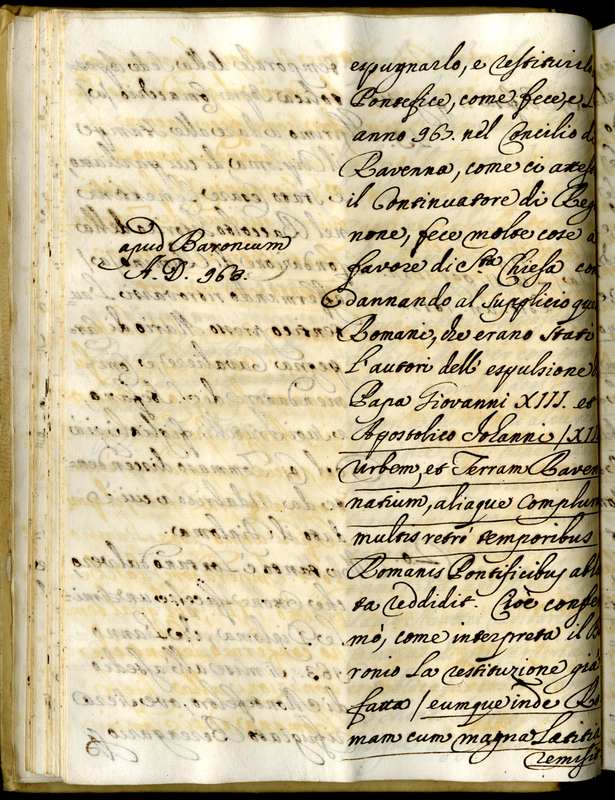 espugnarlo, e restituirlo
Pontefice, come fece, e l'
anno 963. nel Concilio di
Ravenna, come ci attest
il Continuatore di Reg
none, fece molte cose a
favore di Sta Chiesa con
dannando al supplicio que
Romani, che erano stati
l'autori dell'espulsione d
Papa Giovanni XIII. et
Apostolico Iohanni /XII
Urbem, et Terram Raven
natium, aliaque complura
multis retrò temporibus
Romanis Pontificibus abla
ta reddidit. Cioè confer
mò, come interpreta il Ba
ronio la restituzione già
fatta / eumque inde Ro
mam cum magna Lætitia
remisit
apud Baronium
A. D. 963.